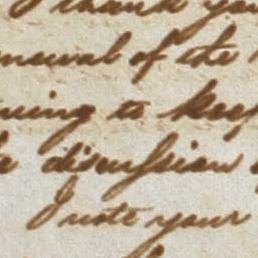 I thank you
newal of the
uing to keep
e discussion
I note your